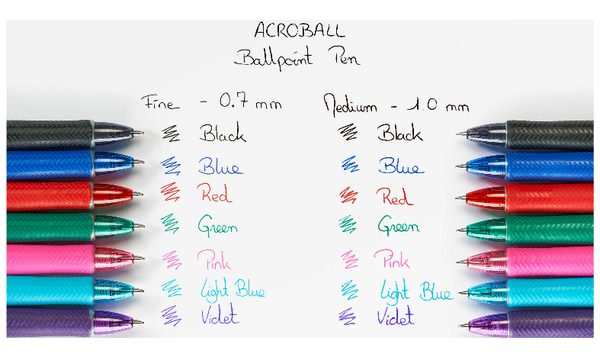 ACROBALL
Ballpoint Pen
Fine - 0.7 mm
Black
Blue
Red
Green
Pink
Light Blue
Violet
Medium - 1.0 mm
Black
Blue
Red
Green
Pink
Light Blue
Violet